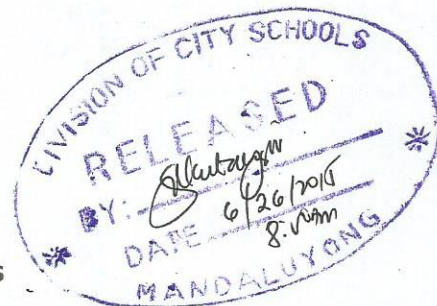 DIVISION OF CITY SCHOOLS
RELEASED
BY:
DATE 6/26/2015
MANDALUYONG
s